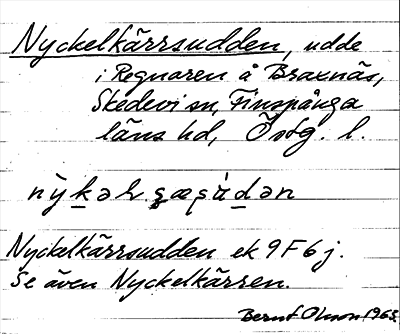 Nyckelkärrsudden, udde
i Regnaren å Braxnäs,
Skedevi sn, Finspånga
läns hd, Östg. l.
Nyckelkärrsudden ek 9F6j.
Se även Nyckelkärren.
Bernt Olsson 1965.